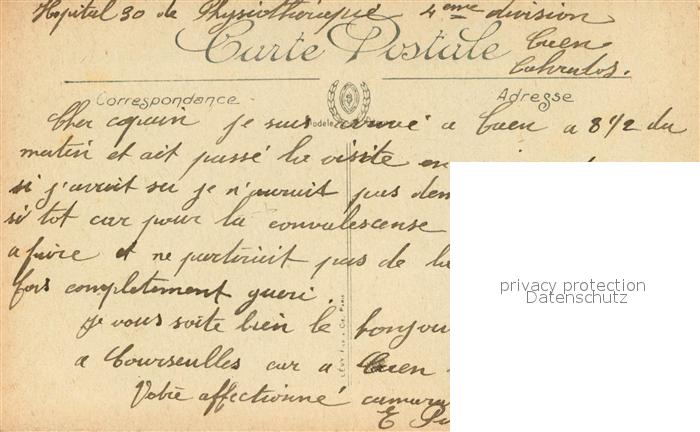 Hopital 30 de Physiothérapie 4eme division
Carte Postale
Caen
Calvados.
Correspondance
Adresse
Cher copain je suis arrivé a Caen a 8 1/2 du
matin et ait passé la visite en
si j'avait su je n'aurait pas dem
si tot car pour la convalescense
a faire et ne partirait pas de la
fois completement gueri.
je vous soite bien le bonjou
a Courseulles car a Caen
Votre affectionné camara
E
privacy protection
Datenschutz